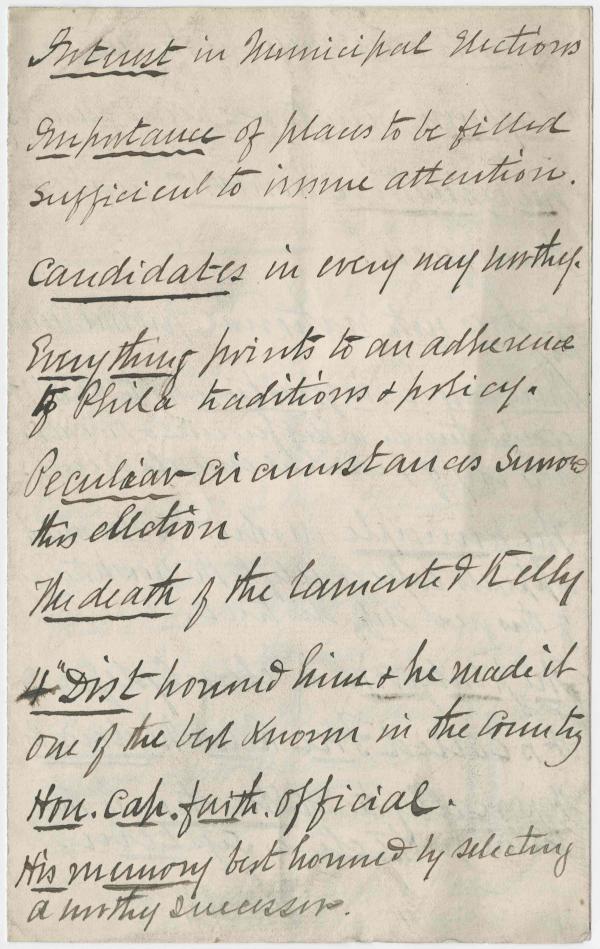 Interest in Municipal Elections
Importance of places to be filled
sufficient to insure attention.
Candidates in every way worthy.
Everything points to an adherence
to Phila traditions & policy.
Peculiar circumstances surround
this election
The death of the lamented Kelly
4" Dist honored him & he made it
one of the best known in the Country
Hon. Cap. faith. official.
His memory best honored by selecting
a worthy successor.